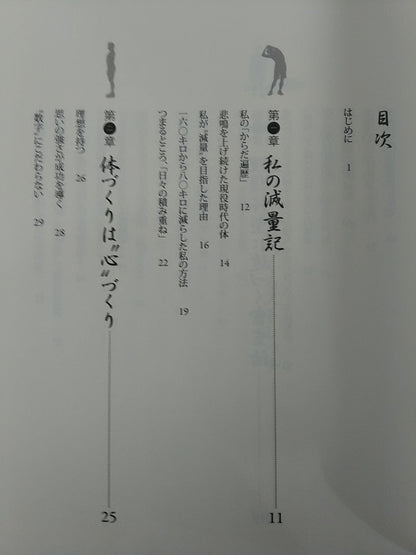 目次
はじめに 1
第一章 私の減量記 11
私の「からだ遍歴」 12
悲鳴を上げ続けた現役時代の体 14
私が“減量”を目指した理由 16
一六〇キロから八〇キロに減らした私の方法 19
つまるところ、「日々の積み重ね」 22
第二章 体づくりは“心”づくり 25
理想を持つ 26
思いの強さが成功を導く 28
“数字”にこだわらない 29